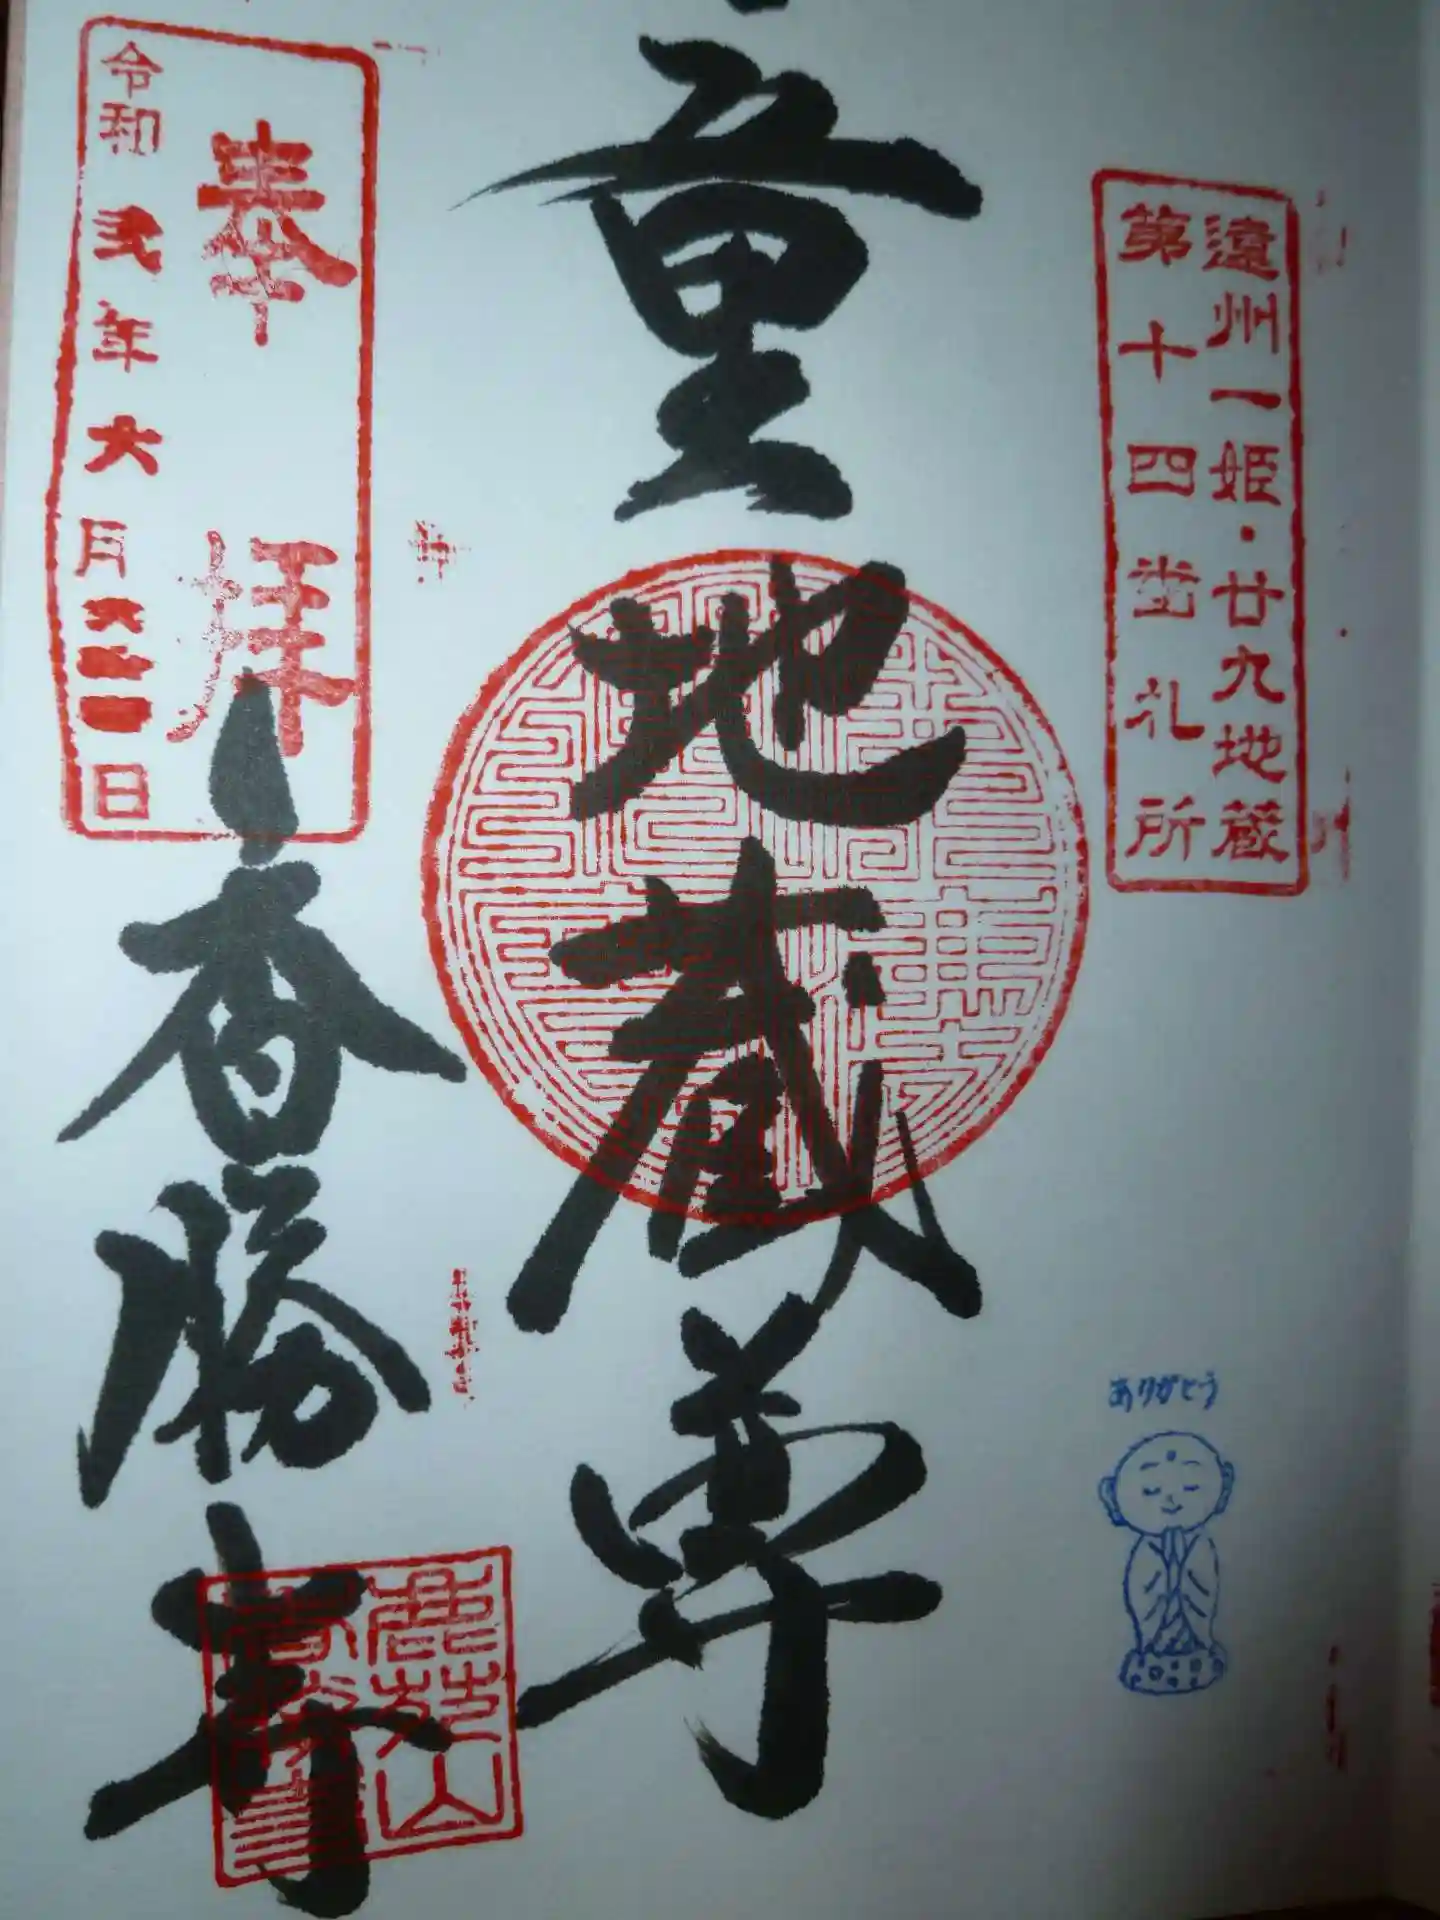 遠州一姫・廿九地蔵
第十四番礼所
ありがとう
童地蔵尊
奉拝
令和弐年六月
日
香勝寺